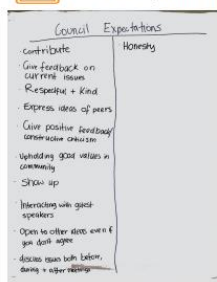 Council Expectations
· Contribute
· Give feedback on
current issues
· Respectful + Kind
· Express ideas of peers
· Give positive feedback/
constructive criticism
· Upholding good values in
community
· Show up
· Interacting with guest
speakers
· Open to other ideas even if
you don't agree
· discuss issues both before,
during + after
Honesty